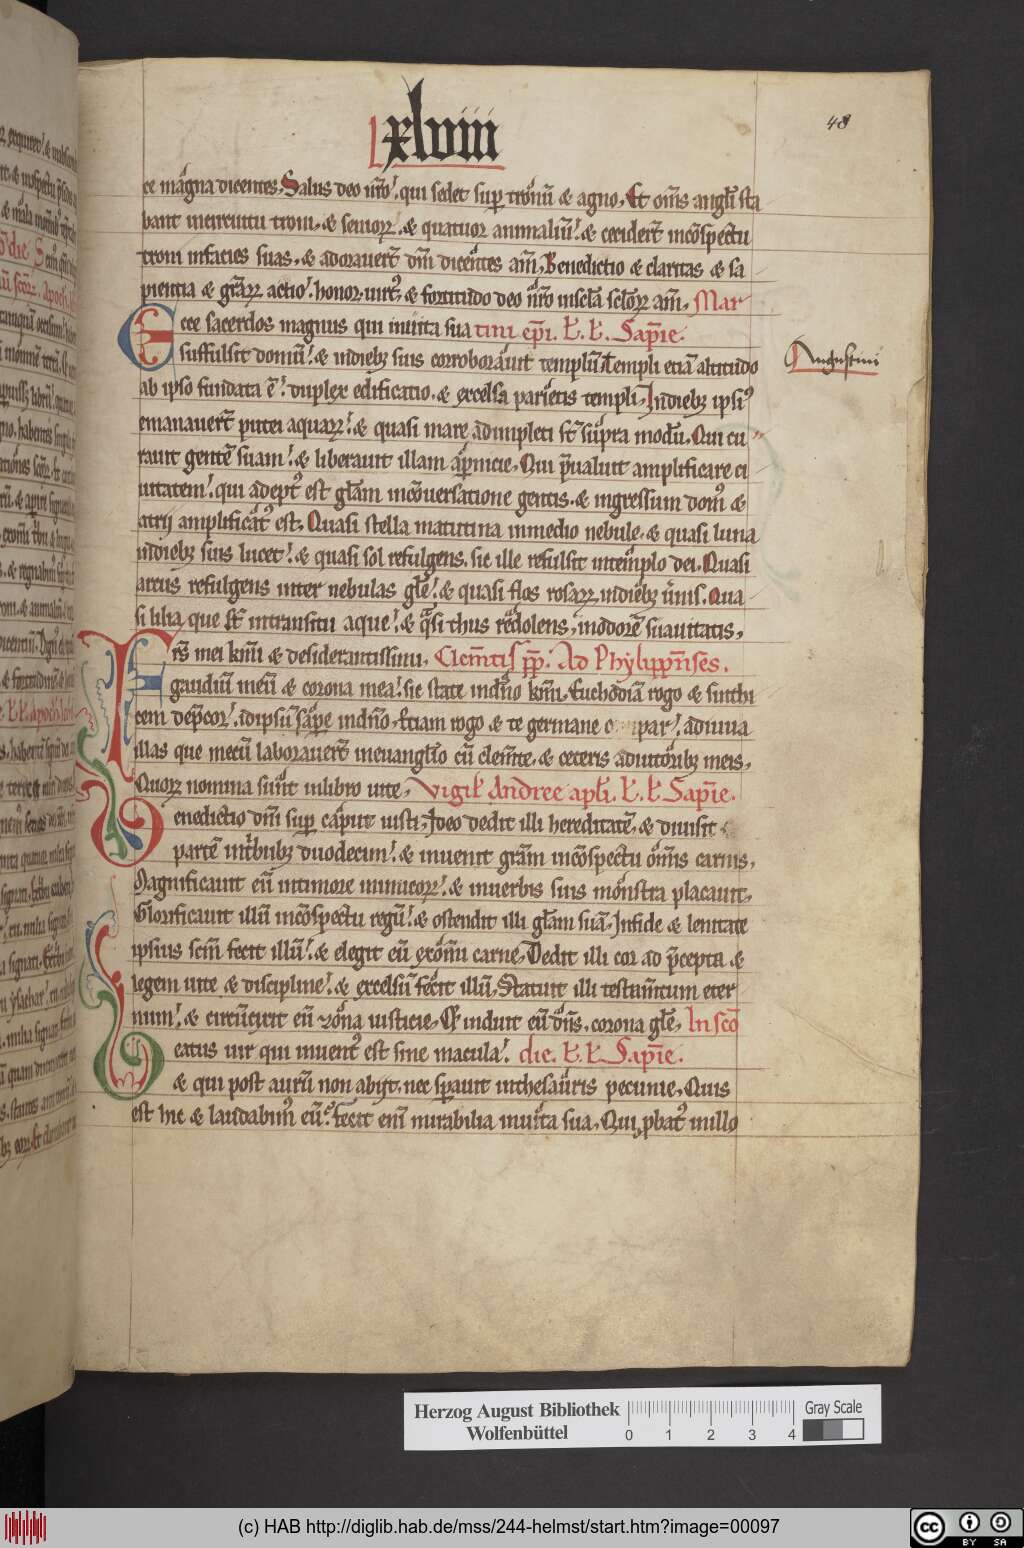 xlviii
48
ce magna dicentes. Salus deo nr̄o. qui sedet sup tronū & agno. Et om̄s angl̄i sta
bant in circuitu troni. & senioꝝ. & quatuor animaliū. & cecider̄t in cōspectu
troni in facies suas. & adorauer̄t dm̄ dicentes am̄. Benedictio & claritas & sa
pientia & gr̄aꝝ actio. honor. uirtꝰ & fortitudo deo nr̄o in scl̄a scl̄oꝝ am̄. Mar
Ecce sacerdos magnus qui in uita sua tini ep̄i. L. L. Sap̄ie.
suffulsit domū. & in diebꝫ suis corroborauit templū. Templi etiā altitudo
Augustini
ab ipso fundata ē. duplex edificatio. & excelsa parietis templi. In diebꝫ ipsiꝰ
emanauer̄t putei aquaꝝ. & quasi mare adimpleti st̄ supra modū. Qui cu
rauit gentē suam. & liberauit illam a ꝑnicie. Qui p̄ualuit amplificare ci
uitatem. qui adeptꝰ est gl̄am in cōuersatione gentis. & ingressum domꝰ &
atrij amplificatꝰ est. Quasi stella matutina in medio nebule. & quasi luna
in diebꝫ suis lucet. & quasi sol refulgens. sic ille refulsit in templo dei. Quasi
arcus refulgens inter nebulas gl̄e. & quasi flos rosaꝝ in diebꝫ u̇nis. Qua
si lilia que st̄ in transitu aque. & q̇si thus redolens. in odorē suauitatis.
Frs̄ mei km̄i & desiderantissimi. Clem̄tis pp̄. Ad Phylipp̄nses.
gaudiū meū & corona mea. sic state in dn̄o km̄i. Euchodiā rogo & sinthi
cem dep̄cor. id ipsū sapere in dn̄o. Etiam rogo & te germane compar. adiuua
illas que mecū laborauer̄t in euangl̄io cū clem̄te. & ceteris adiutoribꝫ meis.
Quoꝝ nomina sunt in libro uite. Vigil' Andree apl̄i. L. L. Sap̄ie.
Benedictio dn̄i sup caput iusti. Ideo dedit illi hereditatē. & diuisit
partē in t̄bubꝫ duodecim. & inuenit gr̄am in cōspectu om̄is carnis.
Magnificauit eū in timore inimicoꝝ. & in uerbis suis monstra placauit.
Glorificauit illū in cōspectu regū. & ostendit illi gl̄am suā. In fide & lenitate
ipsius scm̄ fecit illū. & elegit eū ex om̄i carne. Dedit illi cor ad p̄cepta &
legem uite & discipline. & excelsū fecit illū. Statuit illi testam̄tum eter
num. & circūcixit eū zona iusticie. & induit eū dn̄s. corona gl̄e. In sc̄o
Beatus uir qui inuentꝰ est sine macula. die. L. L. Sap̄ie.
& qui post aurū non abijt. nec sperauit in thesauris pecunie. Quis
est hic & laudabimꝰ eū. fecit eni mirabilia in uita sua. Qui ꝓbatꝰ in illo
Herzog August Bibliothek
Wolfenbüttel
0 1 2 3 4
Gray Scale
(c) HAB http://diglib.hab.de/mss/244-helmst/start.htm?image=00097
cc BY SA